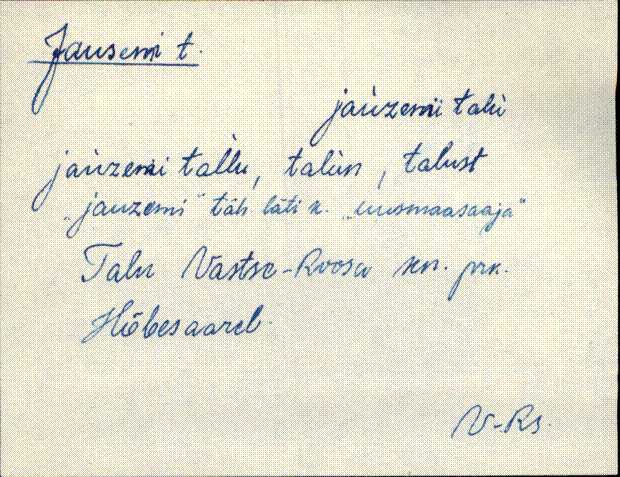 Jausemi t.
jaùzemi talù
jaùzemi tàllu, talùn, talust
„jauzemi" täh. läti k. „uusmaasaaja"
Talu Vastse-Roosa kn. prk.
Hõbesaarel.
V-Rs.